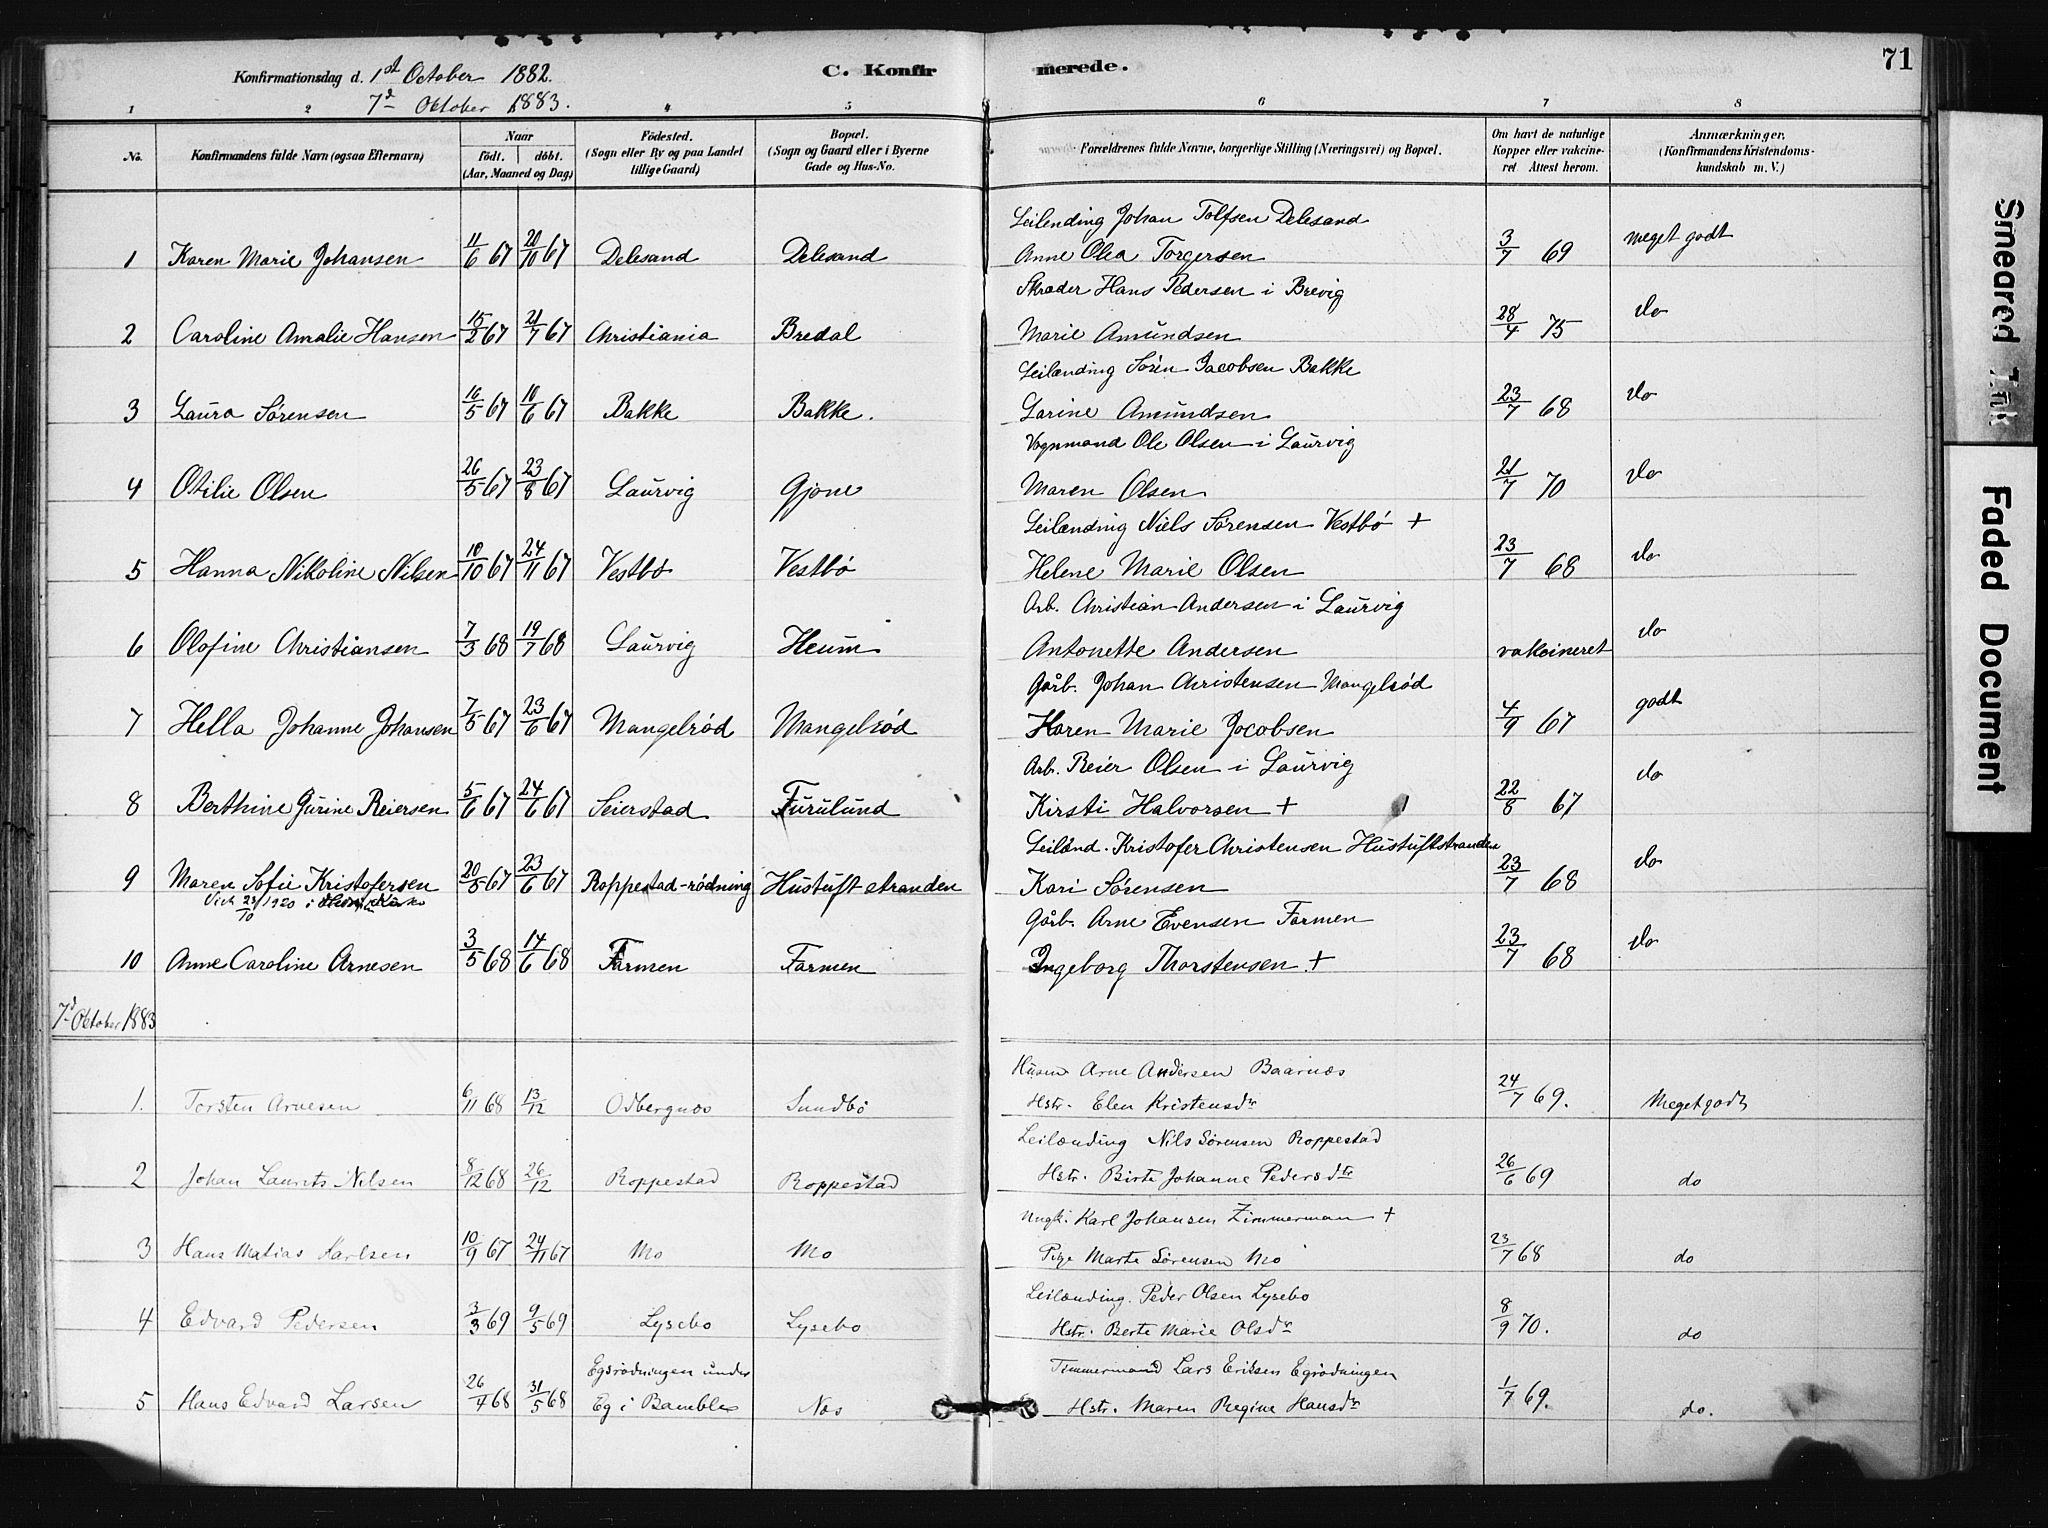 71
Konfirmationsdag d. 1st October 1882. C. Konfirmerede.
7d October 1883.
1 2 4 5 6 7 8
No. Konfirmandens fulde Navn (ogsaa Efternavn) Naar født. døbt. (Aar, Maaned og Dag) Fødested. (Sogn eller By og paa Landet tillige Gaard) Bopæl. (Sogn og Gaard eller i Byerne Gade og Hus-No. Forældrenes fulde Navne, borgerlige Stilling (Næringsvei) og Bopæl. Om havt de naturlige Kopper eller vakcineret Attest herom. Anmærkninger. (Konfirmandens Kristendomskundskab m. V.)
Leilending Johan Tolfsen Delesand
1 Karen Marie Johansen 11/6 67 20/10 67 Delesand Delesand Anne Olea Torgersen 3/7 69 meget godt
Skræder Hans Pedersen i Brevig
2 Caroline Amalie Hansen 15/2 67 21/7 67 Christiania Bredal Marie Amundsen 28/4 75 do
Leilænding Søren Jacobsen Bakke
3 Laura Sørensen 16/5 67 10/6 67 Bakke Bakke. Larine Amundsen 23/7 68 do
Vognmand Ole Olsen i Laurvig
4 Otilie Olsen 26/5 67 23/8 67 Laurvig Gjone Maren Olsen 21/7 70 do
Leilænding Niels Sørensen Vestbö +
5 Hanna Nikoline Nilsen 10/10 67 24/11 67 Vestbö Vestbö Helene Marie Olsen 23/7 68 do
Arb. Christian Andersen i Laurvig
6 Olafine Christiansen 7/3 68 19/7 68 Laurvig Heum Antonette Andersen vakcineret do
Gårb. Johan Christensen Mangelröd
7 Hella Johanne Johansen 7/5 67 23/6 67 Mangelröd Mangelröd Karen Marie Jocobsen 4/9 67 godt
Arb. Reier Olsen i Laurvig
8 Berthine Gurine Reiersen 5/6 67 24/6 67 Seierstad Furulund Kirsti Halvorsen + 22/8 67 do
Leilænd. Kristofer Christensen Hustuftstranden
9 Maren Sofie Kristofersen 20/5 67 23/6 67 Roppestad-rödning Hustuft stranden Kari Sørensen 23/7 68 do
Viet 23/10 1920 i
Gårb. Arne Evensen Farmen
10 Anne Caroline Arnesen 3/5 68 14/6 68 Farmen Farmen Ingeborg Thorstensen + 23/7 68 do
7d October 1883
Husm Arne Andersen Baarnæs
1. Torsten Arnesen 6/11 68 13/12 Odbergnæs Sundbö Hstr. Elen Kristensdtr 24/7 69. Meget godt
Leilænding Nils Sørensen Roppestad
2 Johan Laurits Nilsen 8/12 68 26/12 Roppestad Roppestad Hstr. Birte Johanne Pedersdtr 26/6 69 do
Ungk. Karl Johansen Zimmerman +
3 Hans Matias Karlsen 10/9 67 24/11 67 Mo Mo Pige Marte Sørensen Mo 23/7 68 do
Leilænding. Peder Olsen Lysebo
4 Edvard Pedersen 3/3 69 9/5 69 Lysebo Lysebo Hstr. Berte Marie Olsdtr 8/9 70. do
Egsrødningen under Timmermand Lars Eriksen Egrødningen
5 Hans Edvard Larsen 26/4 68 31/5 68 Eg i Bamble Næs Hstr. Maren Regine Hansdtr 1/7 69. do.
Smeared Ink
Faded Document